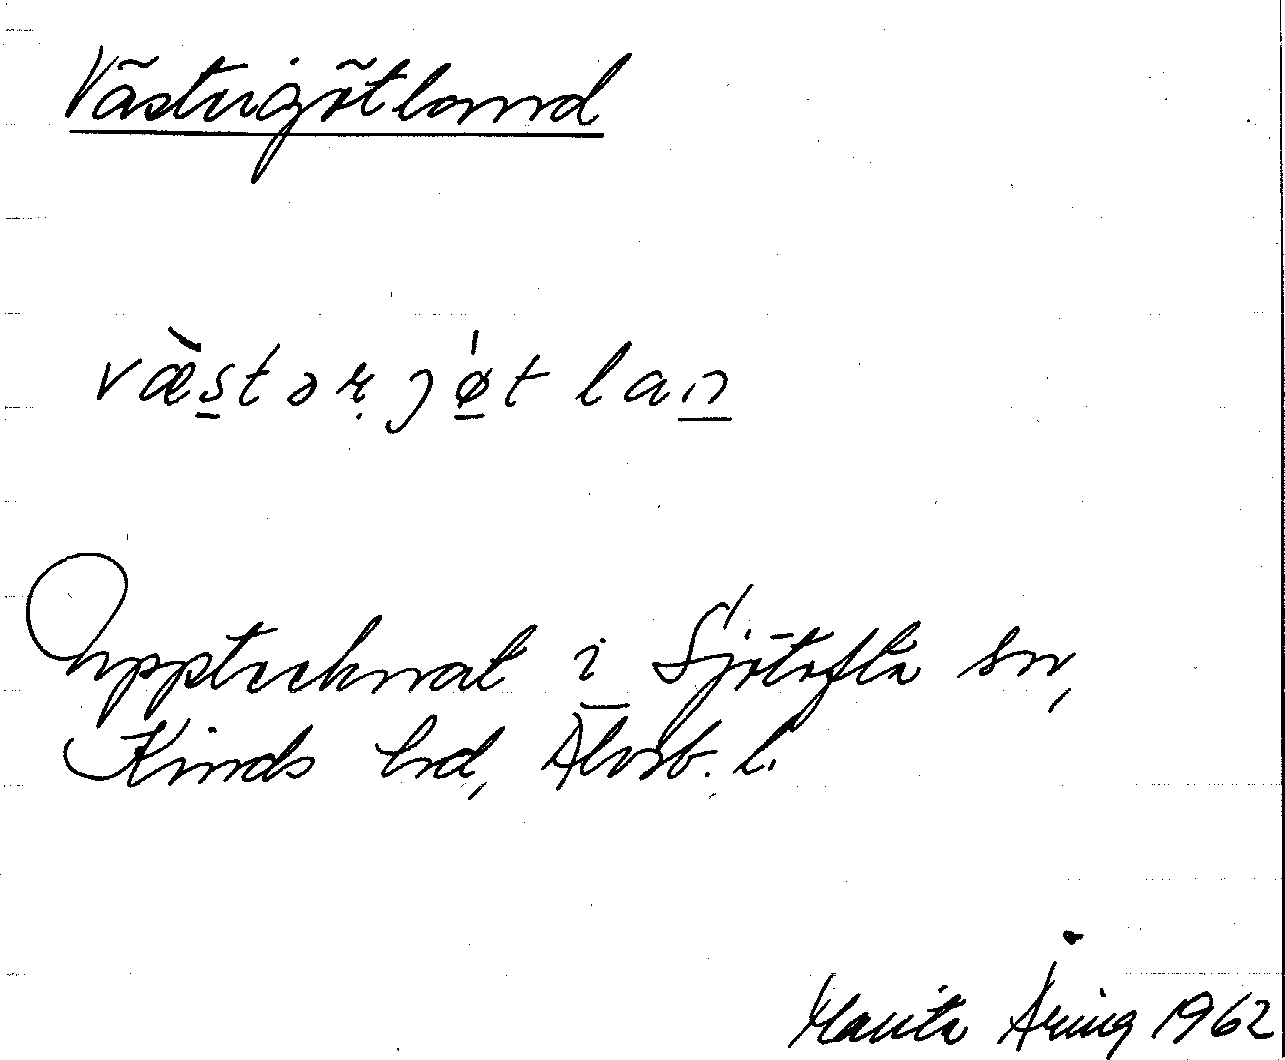 Västergötland
væ̀s̲tərj̣ǿ̲tlan̲
Upptecknat i Sjötofta sn,
Kinds hd, Älvsb. l.
Marita Åring 1962